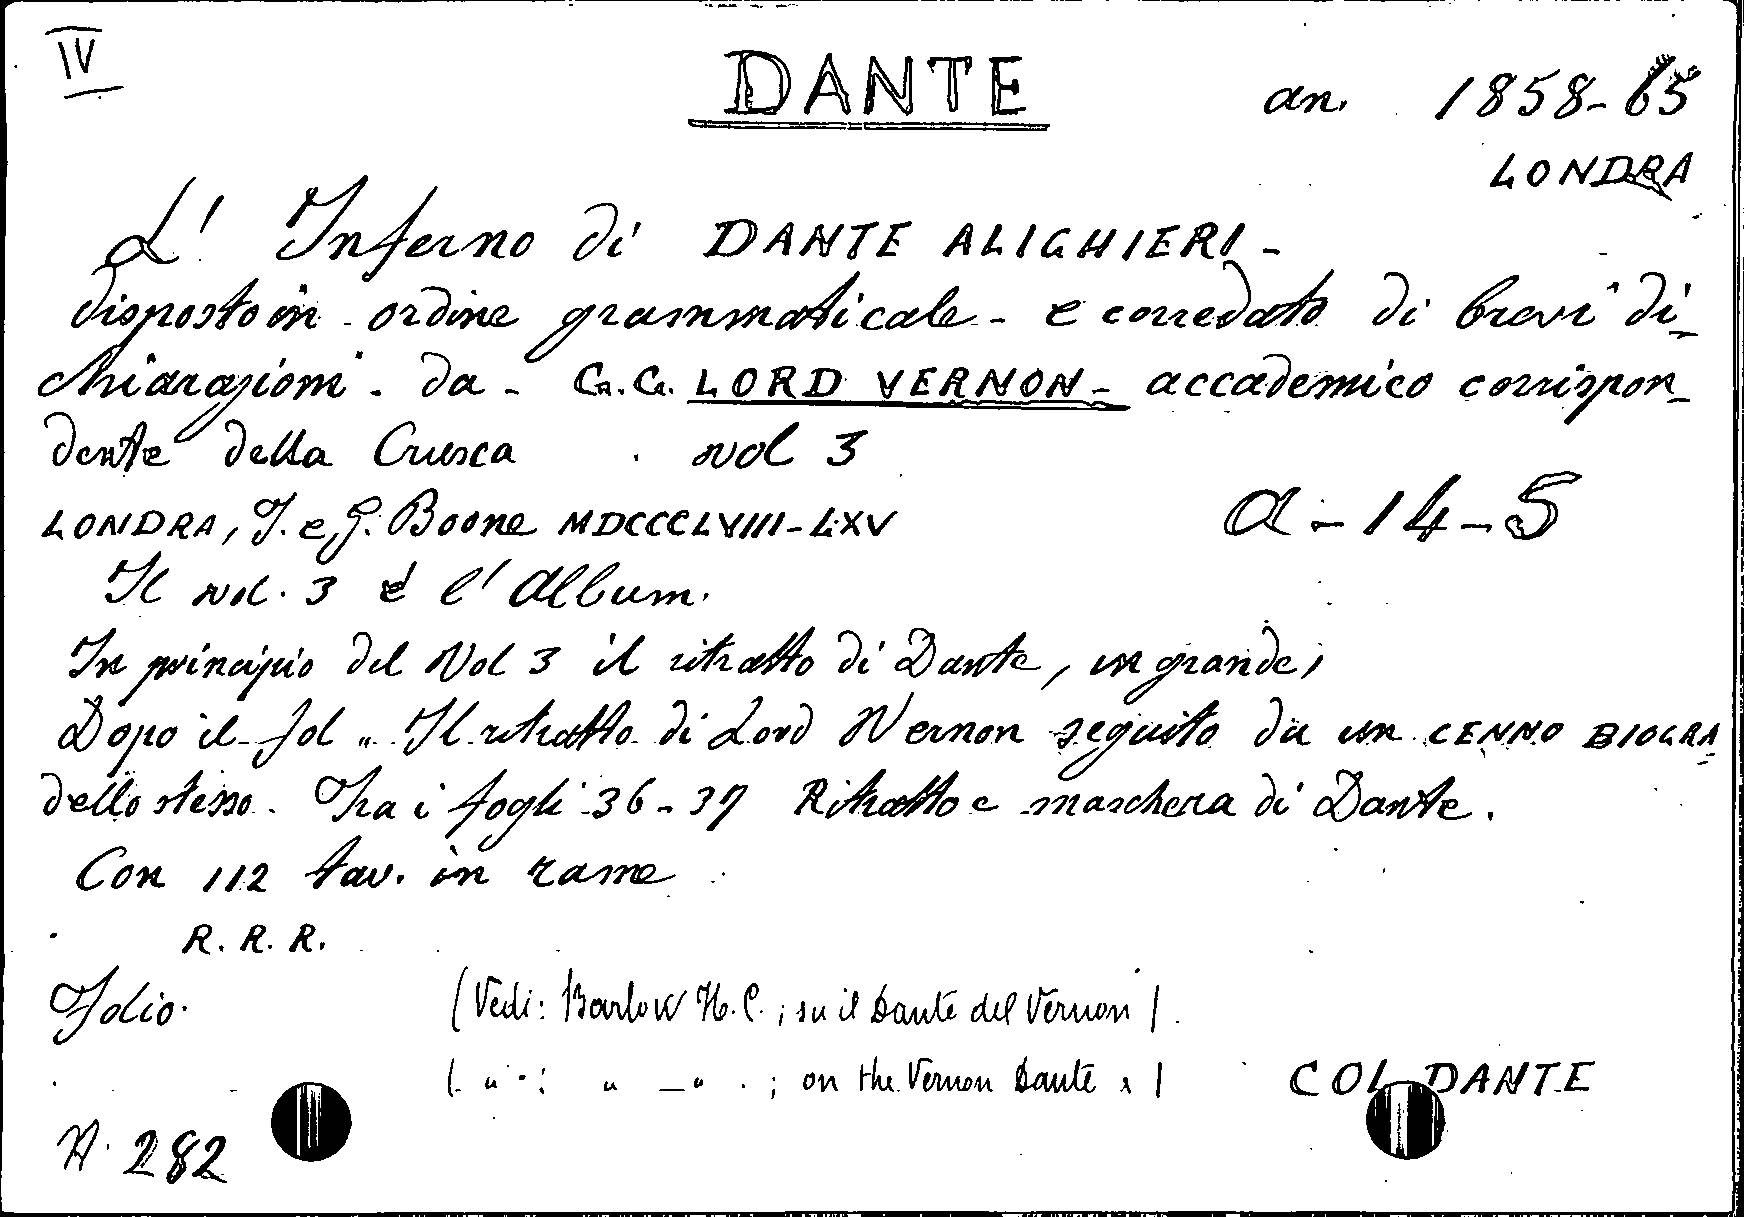 IV
DANTE an. 1858-65
LONDRA
L' Inferno di DANTE ALIGHIERI -
disposto in ordine grammaticale - e corredato di brevi di-
chiarazioni - da - G.G. LORD VERNON - accademico corrispon-
dente della Crusca vol 3
LONDRA, T. e G. Boone MDCCCLVIII-LXV a-14-5
Il vol. 3 è l'Album.
In principio del Vol 3 il ritratto di Dante, in grande;
Dopo il fol " Il ritratto di Lord Vernon seguito da un CENNO BIOGRA
dello stesso. Tra i fogli 36-37 Ritratto e maschera di Dante.
Con 112 tav. in rame
R. R. R.
Folio.
(Vedi: Barlow H.C.; su il Dante del Vernon)
( " : " — " . ; on the Vernon Dante )
COL DANTE
N. 282